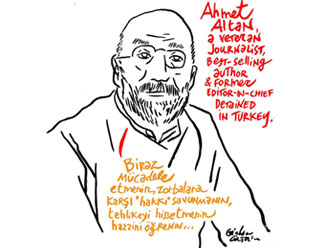 AHMET
ALTAN,
a VETERAN
JOURNALIST,
BEST-SELLING
author
& FORMER
EDITOR-IN-CHIEF
DETAINED
IN TURKEY.
BİRAZ
MÜCADELE
ETMENİN, ZORBALARA
KARŞI "HAKKI" SAVUNMANIN,
tehlikeyi hissetmenin
hazzını öğrenin...